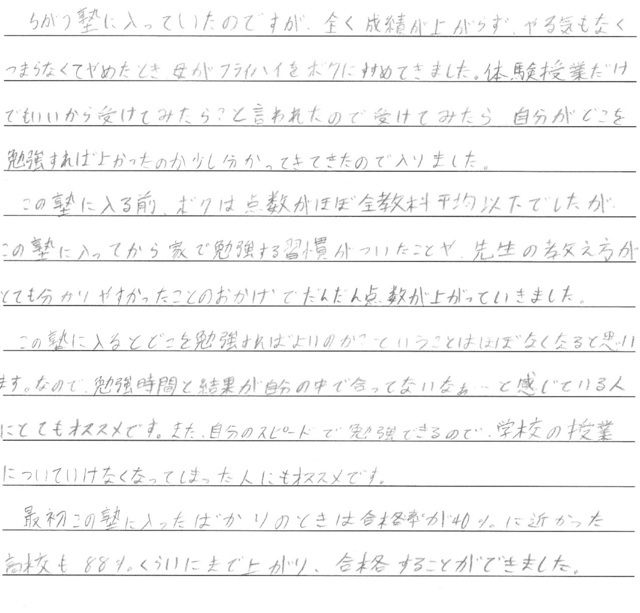 ちがう塾に入っていたのですが、全く成績が上がらず、やる気もなく
つまらなくてやめたとき母がフライハイをボクにすすめてきました。体験授業だけ
でもいいから受けてみたらこと言われたので受けてみたら 自分がどこを
勉強すればよかったのか少し分かってきてきたので入りました。
この塾に入る前、ボクは点数がほぼ全教科平均以下でしたが、
この塾に入ってから家で勉強する習慣がついたことや、先生の教え方が
とても分かりやすかったことのおかげでだんだん点数が上がっていきました。
この塾に入るとどこを勉強すればよいのか?ということはほぼなくなると思い
ます。なので、勉強時間と結果が自分の中で合ってないなぁ…と感じている人
にとてもオススメです。また、自分のスピードで勉強できるので、学校の授業
についていけなくなってしまった人にもオススメです。
最初この塾に入ったばかりのときは合格率が40%に近かった
高校も88%くらいにまで上がり、合格することができました。